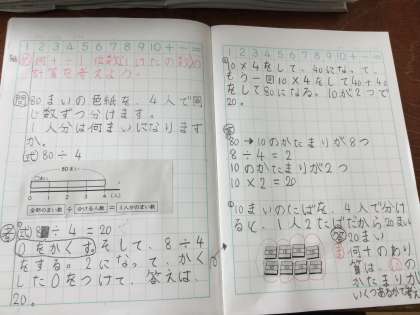 1 2 3 4 5 6 7 8 9 10 + - =
何十÷1
計算を考えよう。
問 80まいの色紙を、4人で同
じ数ずつ分けます。
1人分は何まいになります
か。
式 80÷4
80まい
0 1 2 3 4 (人)
全部のまい数 ÷ 分ける人数 = 1人分のまい数
式 80÷4=20
0をかくす。そして、8÷4
をする。2になって、かく
した0をつけて、答えは、
20。
1 2 3 4 5 6 7 8 9 10 + - =
10×4をして、40になって、
もう一回10×4をして40+40
をして80になる。10が2つで
20。
80→10のかたまりが8つ
8÷4=2
10のかたまりが2つ
10×2=20
10まいのたばを、4人で分け
ると、1人2たばだから20まい
答 20まい
何十のわり
算は、10の
かたまりが
いくつあるかで考え